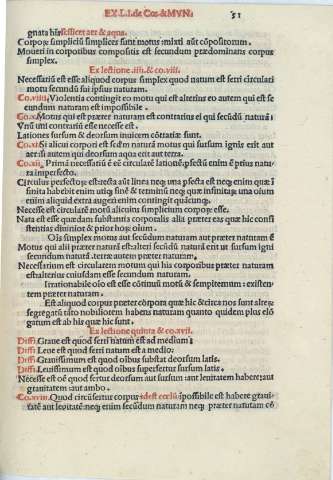 EX.LI.I.de Coe.&MVN: 51
gnata his scilicet aer & aqua.
Corporum simpliciũ simplices sunt motus: mixti aut cõpositorum.
Moueri in corporibus compositis est secundum prædominans corpus
simplex.
Ex lectione .iiii. & co.viii.
Necessariũ est esse aliquod corpus simplex quod natum est ferri circulari
motu secundũ sui ipsus naturam.
Co.viii. Violentia contingit eo motu qui est alterius eo autem qui est se
cundum naturam est impossibile.
Co.x. Motui qui est præter naturam est contrarius el qui secũdũ naturã i
Vnũ uni contrariũ esse necesse est.
Lationes sursum & deorsum inuicem cõtiariæ sunt.
Co.xi. Si alicui corpori est secdm̃ naturã motus qui sursum ignis erit aut
aer si autem qui deorsum aqua erit aut terra.
Co.xii. Prima necessariũ é eé circularé latioé. pfectũ enim é prius natu-
ra imperfecto.
Circulus perfectorũ est recta aũt linea neq; una pfecta est neq; enim quæ ĩ
finita habebit enim utiq; finẽ & terminũ neq; quæ infinita; una oium
enim aliquid extra augeri enim contingit quãcunq;
Necesse est circularẽ motũ alicuius simplicium corporum esse.
Nata est esse quædam substantia corporalis alia præter eas quæ hic consi
stentias diuinior & prior hoç oium.
Ois simplex motus aut secũdum naturam aut præter naturam ẽ
Motus qui alii præter naturã est alteri secũdũ naturã erit ut sursum igni
secundum naturã. terræ autem præter naturam.
Necessarium est circularem motum qui his corporibus præter naturam
est alterius cuiusdam esse secundum naturam.
Irrationabile oio est essé continuũ motũ & sempiternum: existen-
tem præter naturam.
Est aliquod corpus præter corpora quæ hic & circa nos sunt alterum
segregatũ tãto nobiliorem habens naturam quanto quidem plus elõ
gatum est ab his quæ hic sunt.
Ex lectione quinta & co.xvii.
Diffi. Graue est quod ferri natum est ad medium:
Diffi. Leue est quod ferri natum est a medio:
Diffi. Grauissimum est quod oibus substat deorsum latis.
Diffi. Leuissimum est quod oibus superfertur sursum latis.
Necesse est oẽ quod fertur deorsum aut sursum aut leuitatem habere: aut
grauitatem aut ambo.
Co.xviii. Quod circũfertur corpus id est celũ ipossibile est habere graui-
tatẽ aut leuitatẽ neq; enim secũdum naturam neq; præter naturam cõ